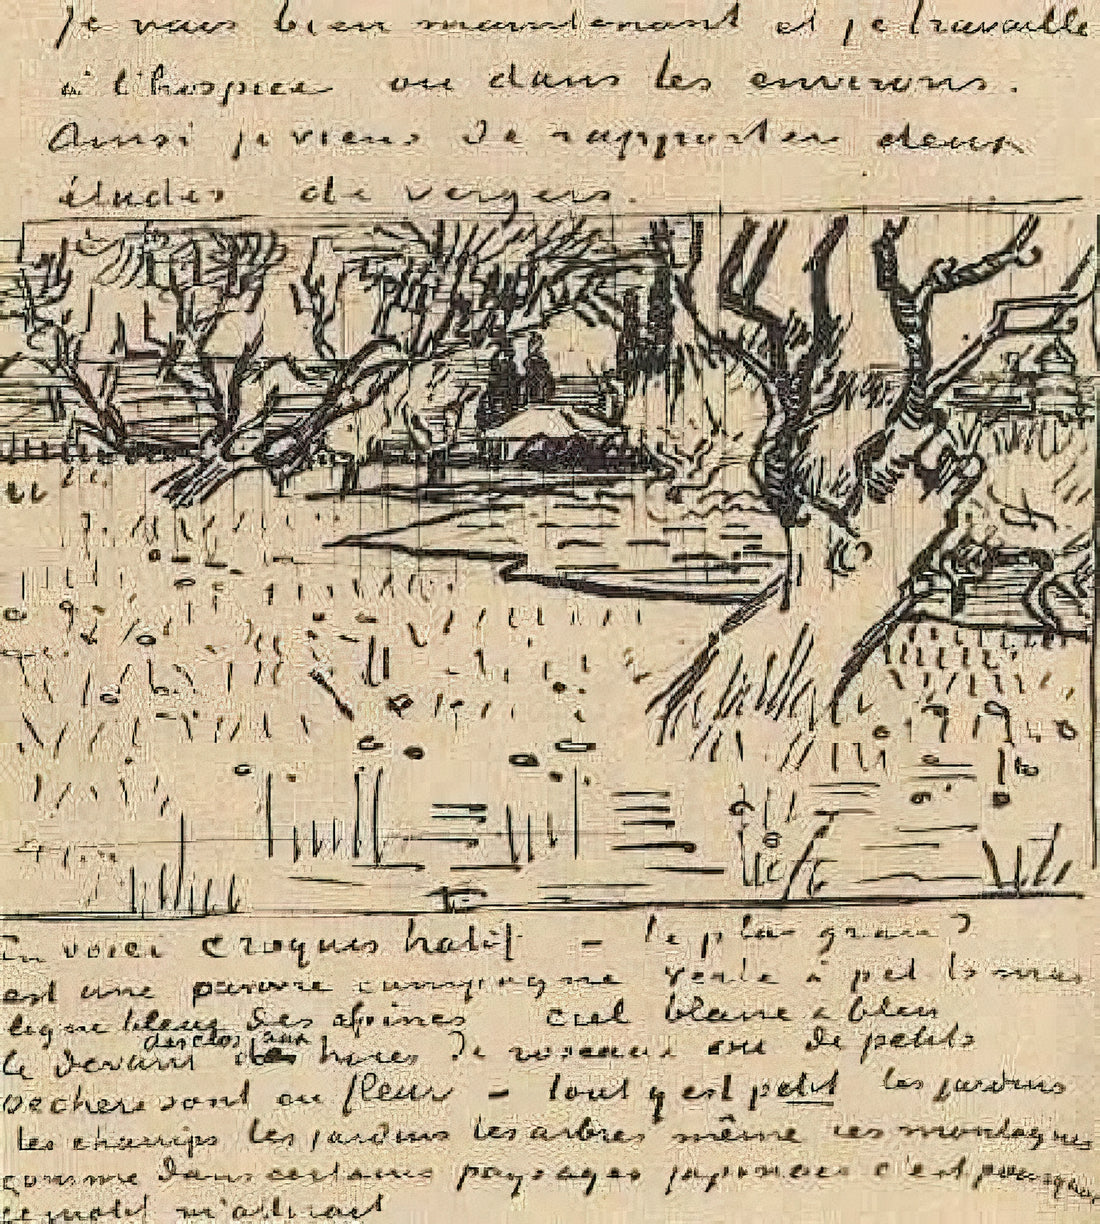 Je vais bien maintenant et je travaille
à l'hospice ou dans les environs.
Ainsi je viens de rapporter deux
études de vergers.
En voici croquis hatif – le plus grand
est une pauvre campagne verte à pet
ligne bleue des alpines ciel blanc & bleu
le devant des clos aux haies de roseaux ou de petits
pechers sont en fleur – tout y est petit les jardins
les champs les jardins les arbres même ces montagnes
comme dans certains paysages japonais c'est pourquoi
ce motif m'attirait